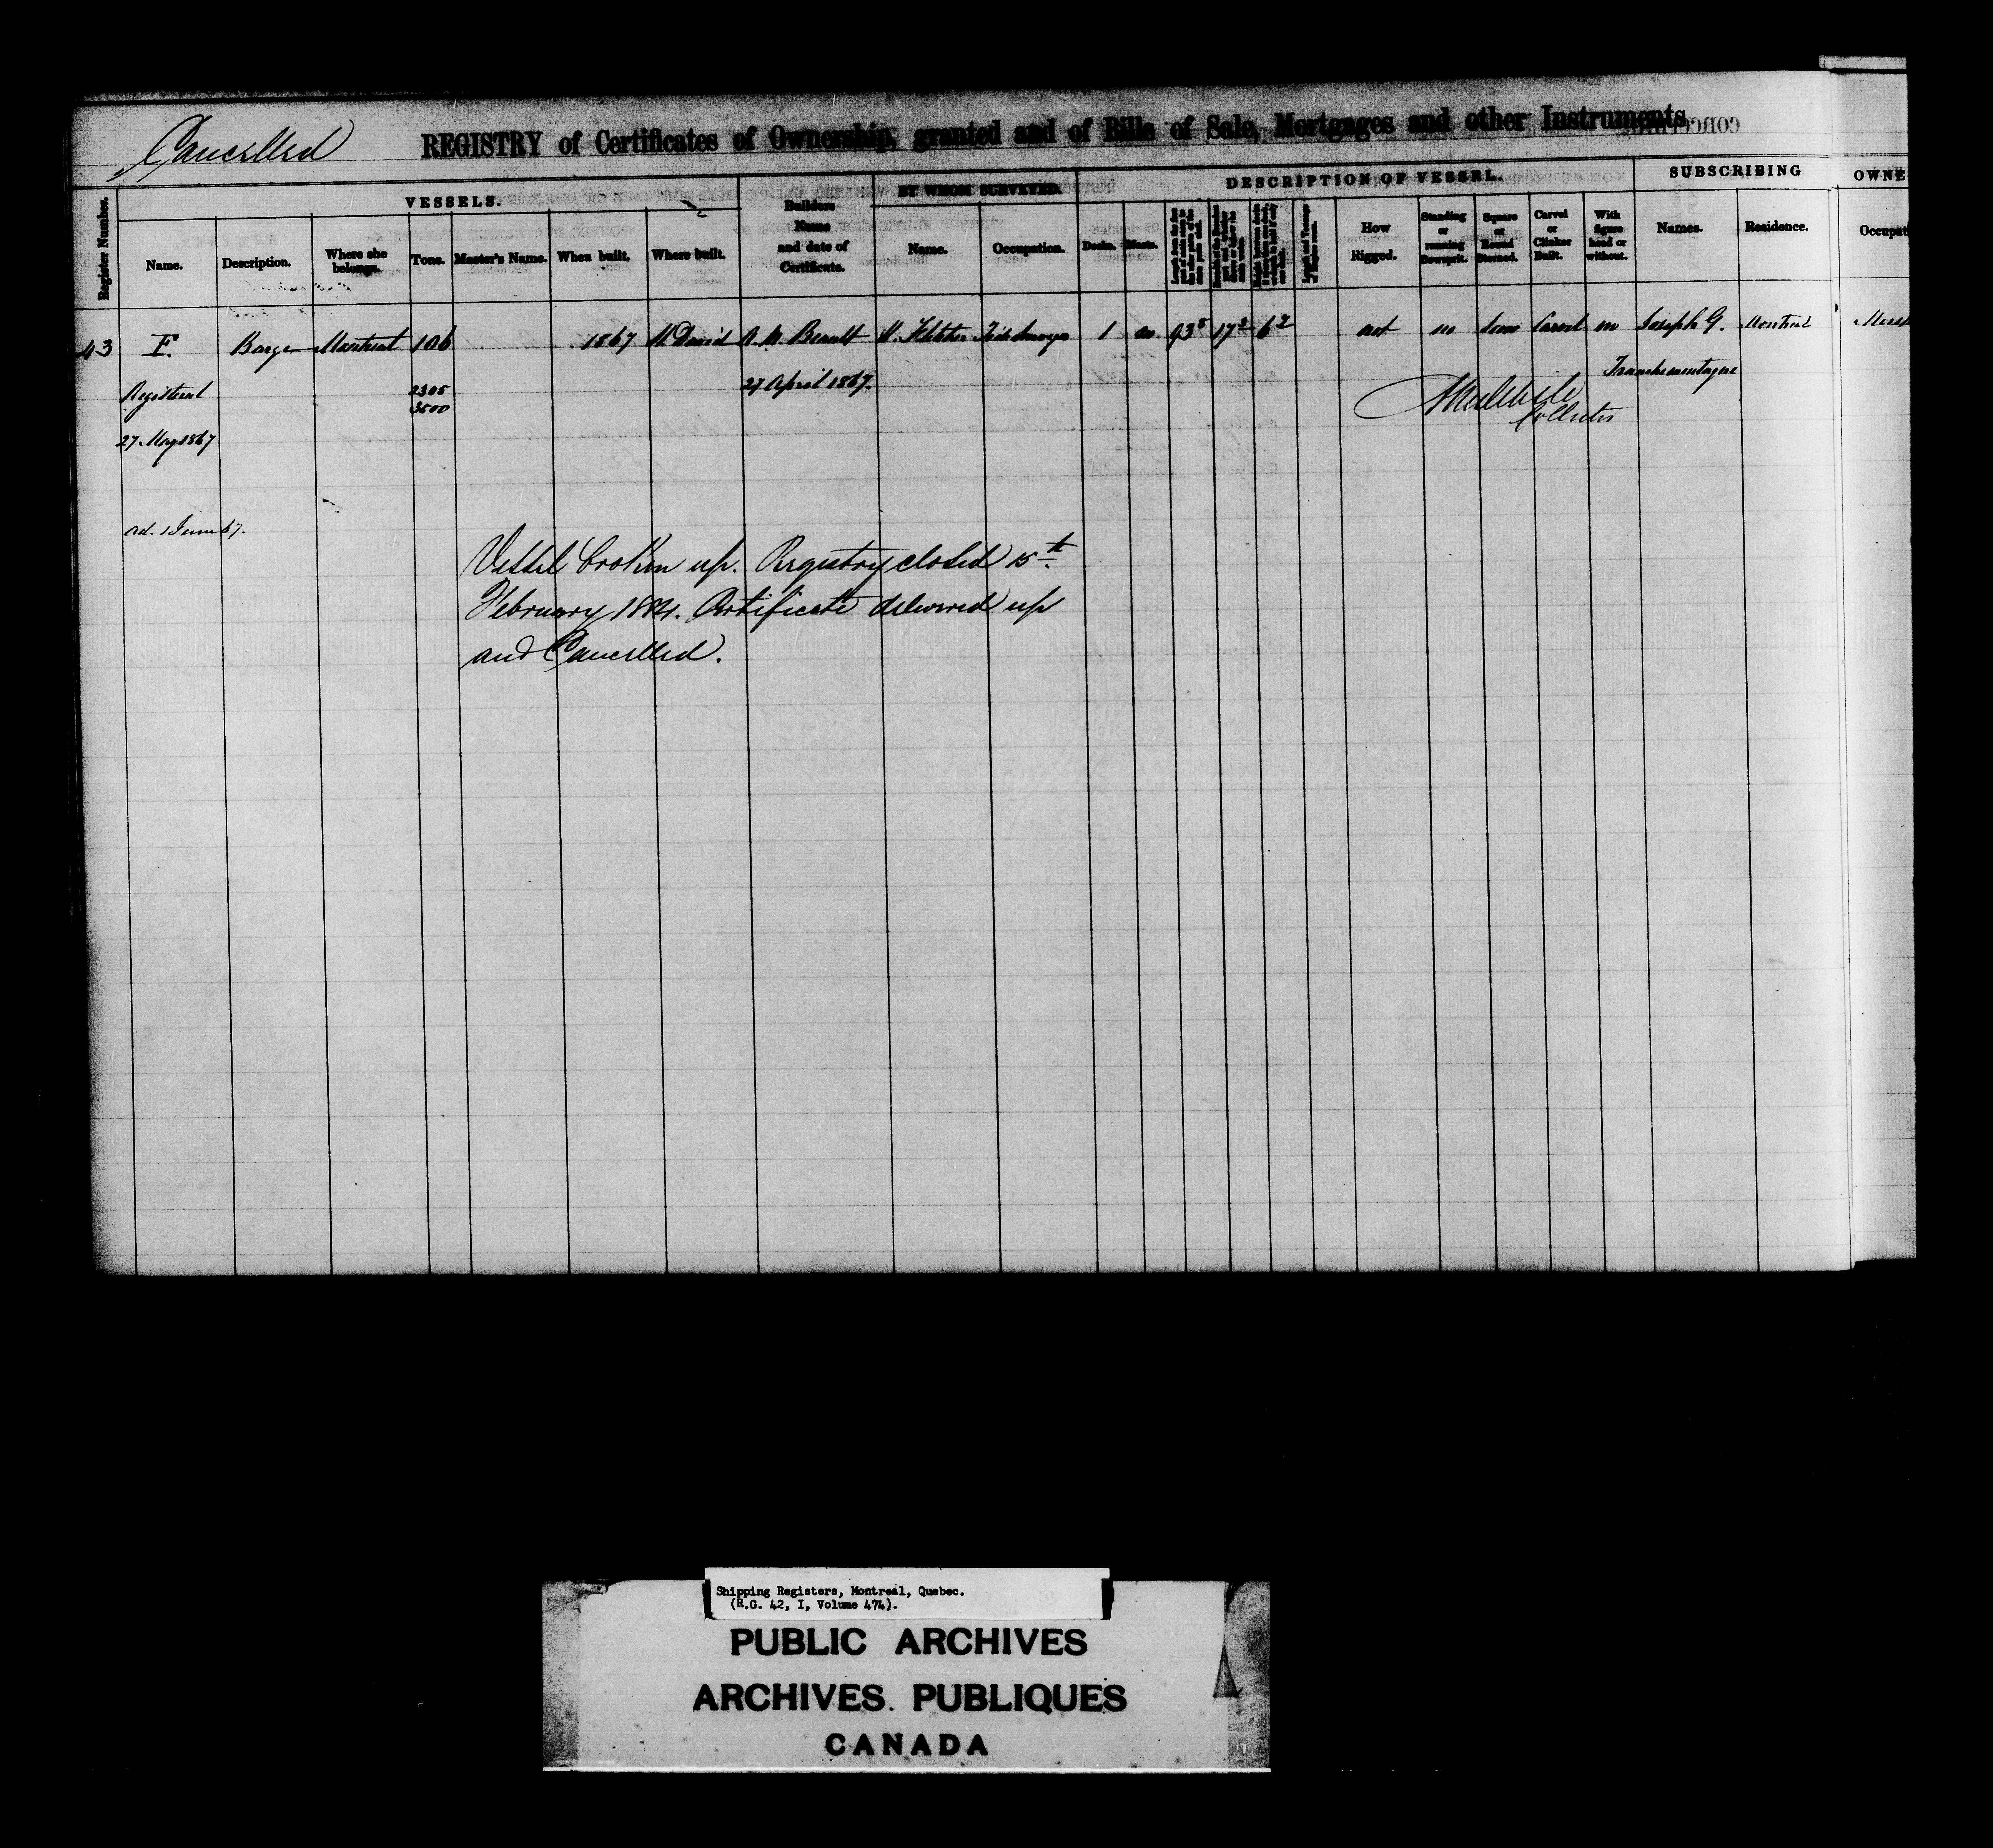 Cancelled
REGISTRY of Certificates of Ownership, granted and of Bills of Sale, Mortgages and other Instruments
VESSELS.
BY WHOM SURVEYED.
DESCRIPTION OF VESSEL.
SUBSCRIBING
OWNE
Register Number.
Name.
Description.
Where she belongs.
Tons.
Master's Name.
When built.
Where built.
Builders Name and date of Certificate.
Name.
Occupation.
Decks.
Masts.
How Rigged.
Standing or running Bowsprit.
Square or Round Sterned.
Carvel or Clinker Built.
With figure head or without.
Names.
Residence.
Occupat
43 F. Barge Montreal 106 1867 St David 1 no 93 5 17 2 6 2 not no Carvel no Joseph G. Montreal
Registered 2305 27 April 1867. Tranchemontagne
3500 Collector
27 May 1867
1 June 67.
Vessel broken up. Registry closed 15th
February 1884. Certificate delivered up
and Cancelled.
Shipping Registers, Montreal, Quebec.
(R.G. 42, I, Volume 474).
PUBLIC ARCHIVES
ARCHIVES PUBLIQUES
CANADA